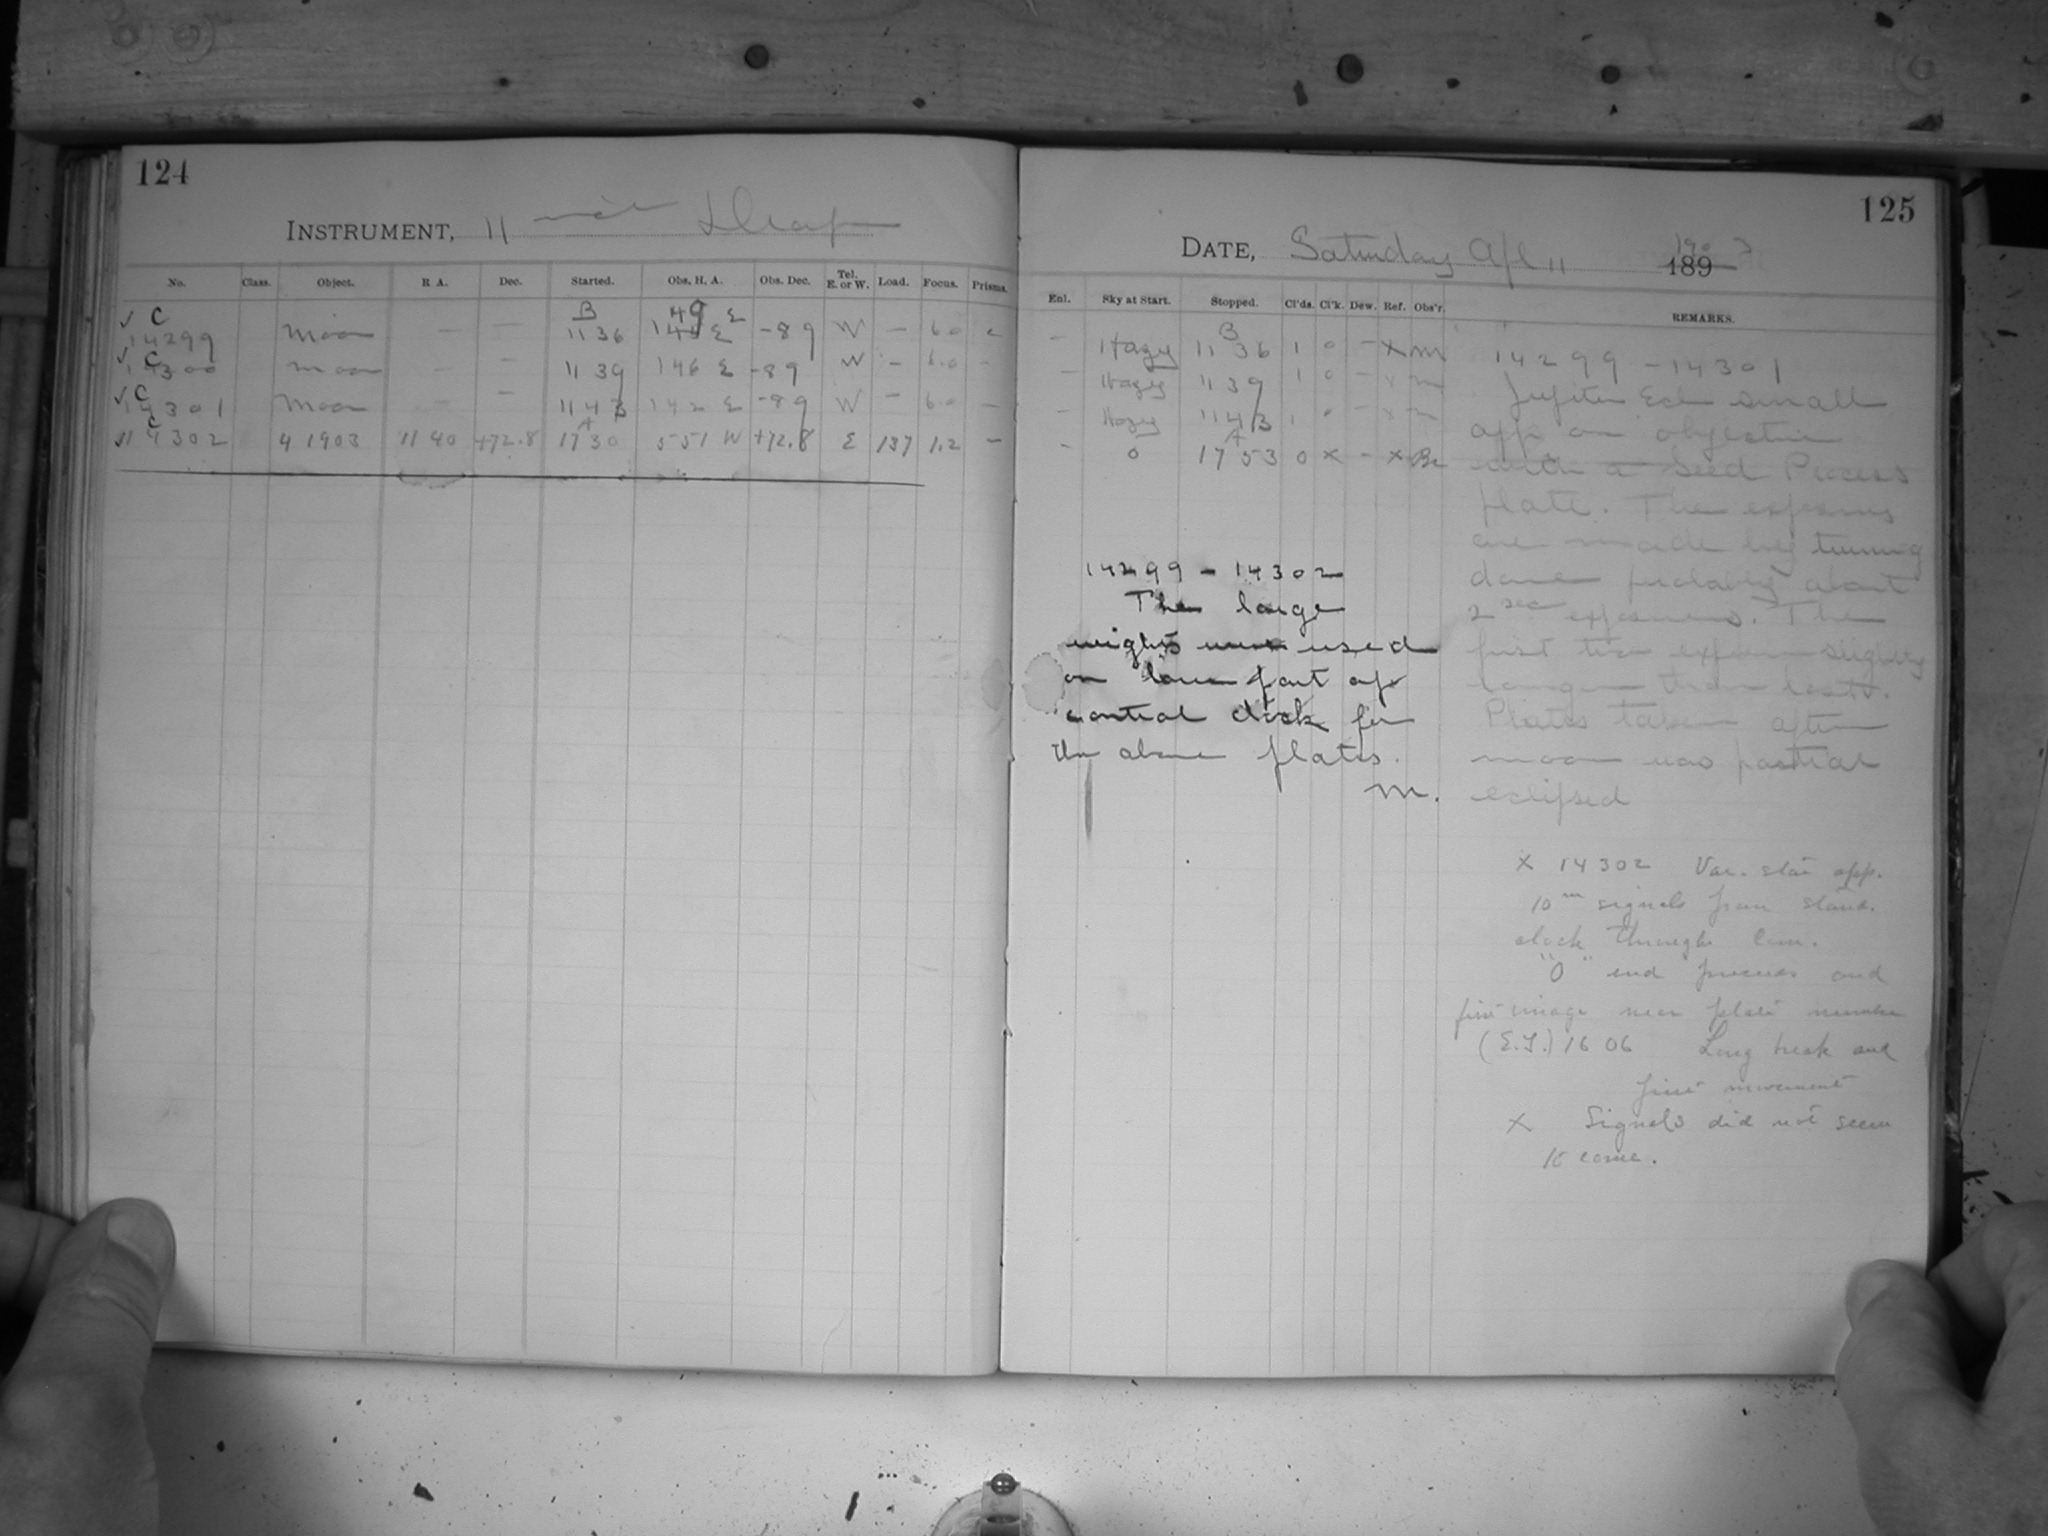 124
INSTRUMENT, 11 inch Draper
No. Class. Object. R A. Dec. Started. Obs. H. A. Obs. Dec. Tel. E. or W. Load. Focus. Prisms.
B 49
✓ C 14299 Moon — — 11 36 146 E E -89 W — 6.0 -
✓ C 14300 Moon — — 11 39 146 E -89 W — 6.0 -
✓ C 14301 Moon — — 11 43 142 E -89 W — 6.0 —
A
✓ C 14302 4 1903 11 40 +72.8 17 30 5 51 W +72.8 E 137 1.2 —
125
DATE, Saturday Apl 11 1903
189
Enl. Sky at Start. Stopped. Cl'ds. Cl'k. Dew. Ref. Obs'r. REMARKS.
B
- Hazy 11 36 1 0 - x m
- Hazy 11 39 1 0 - x m
- Hazy 11 43 1 0 - x m
A
- 0 17 53 0 x - x
14299 - 14302
The large
weights were used
on lower part of
control clock for
the above plates.
M.
14299 - 14301
Jupiter Ecl small
app on objective
with a Seed Process
plate. The exposures
are made by turning
dome probably about
2 sec exposures. The
first two expos slightly
longer than last.
Plates taken after
moon was partial
eclipsed
x 14302 Var. star app.
10 m signals from stand.
clock through Com.
"0" end precedes and
first image near plate number
(E.T.) 16 06 Long break and
first movement
x Signals did not seem
to come.